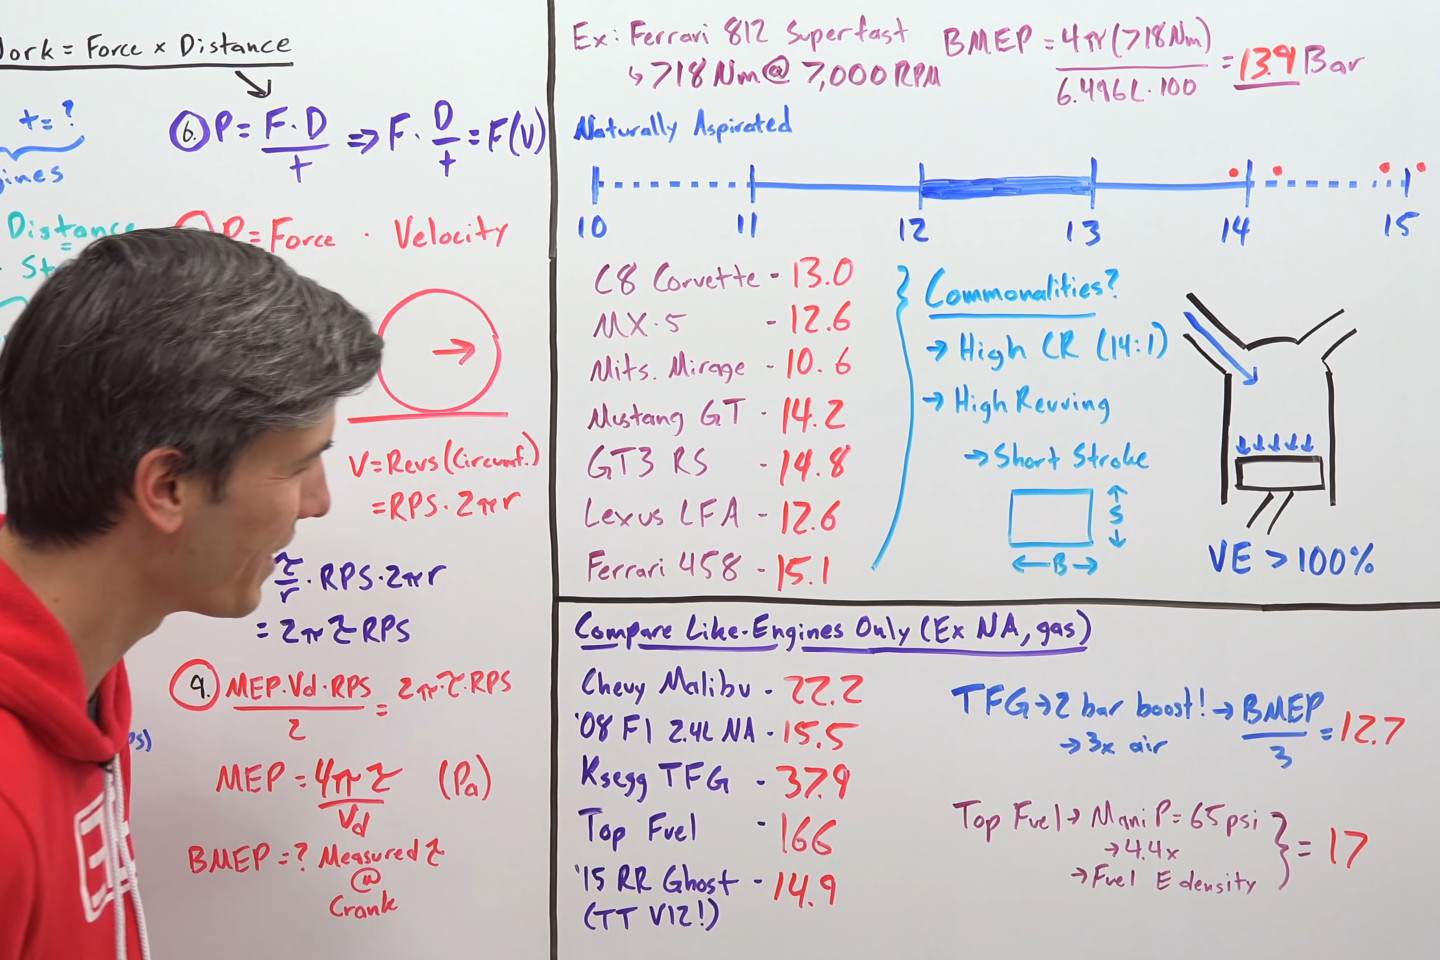 Work = Force × Distance
t = ?
6. P = F·D/t ⇒ F · D/t = F(V)
gines
Distance
P = Force · Velocity
St
V = Revs (Circumf.)
= RPS · 2πr
τ/r · RPS · 2πr
= 2π τ RPS
9. MEP·Vd·RPS/2 = 2π·τ·RPS
ps)
MEP = 4π τ/Vd (Pa)
BMEP = ? Measured τ
@
Crank
Ex: Ferrari 812 Superfast
↳ 718 Nm @ 7,000 RPM
BMEP = 4π(718 Nm)/6.496L·100 = 13.9 Bar
Naturally Aspirated
10 11 12 13 14 15
C8 Corvette - 13.0
MX-5 - 12.6
Mits. Mirage - 10.6
Mustang GT - 14.2
GT3 RS - 14.8
Lexus LFA - 12.6
Ferrari 458 - 15.1
Commonalities?
→ High CR (14:1)
→ High Revving
→ Short Stroke
S
B
VE > 100%
Compare Like-Engines Only (Ex NA, gas)
Chevy Malibu - 22.2
'08 F1 2.4L NA - 15.5
Ksegg TFG - 37.9
Top Fuel - 166
'15 RR Ghost - 14.9
(TT V12!)
TFG → 2 bar boost! → BMEP/3 = 12.7
→ 3x air
Top Fuel → Mani P = 65 psi
→ 4.4x
→ Fuel E density
= 17